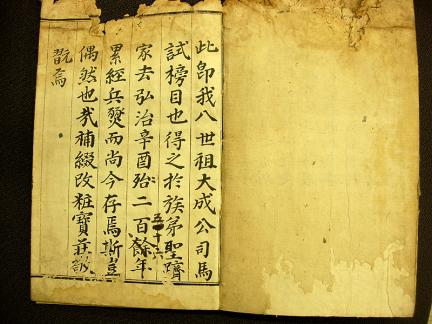 此卽我八世祖大成公司馬
試榜目也得之於族弟聖躋
家去弘治辛酉殆二百餘年
五十六
累經兵燹而尚今存焉斯豈
偶然也㢤補綴改粧寶莊誠
翫焉